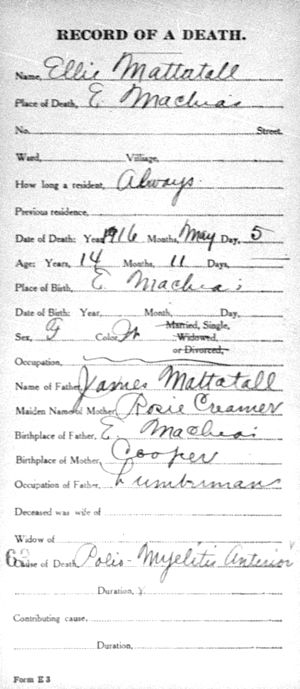 RECORD OF A DEATH.
Name, Ellie Mattatall
Place of Death, E Machias
No. Street.
Ward, Village,
How long a resident, Always
Previous residence,
Date of Death: Year, 1916 Months, May Day, 5
Age: Years, 14 Months, 11 Days,
Place of Birth, E Machias
Date of Birth: Year, Month, Day,
Sex, F Color, W Married, Single,
Widowed,
or Divorced,
Occupation,
Name of Father, James Mattatall
Maiden Name of Mother, Rosie Creamer
Birthplace of Father, E Machias
Birthplace of Mother, Cooper
Occupation of Father, Lumberman
Deceased was wife of
Widow of
Cause of Death, Polio-Myelitis Anterior
Duration,
Contributing cause,
Duration,
Form E 3